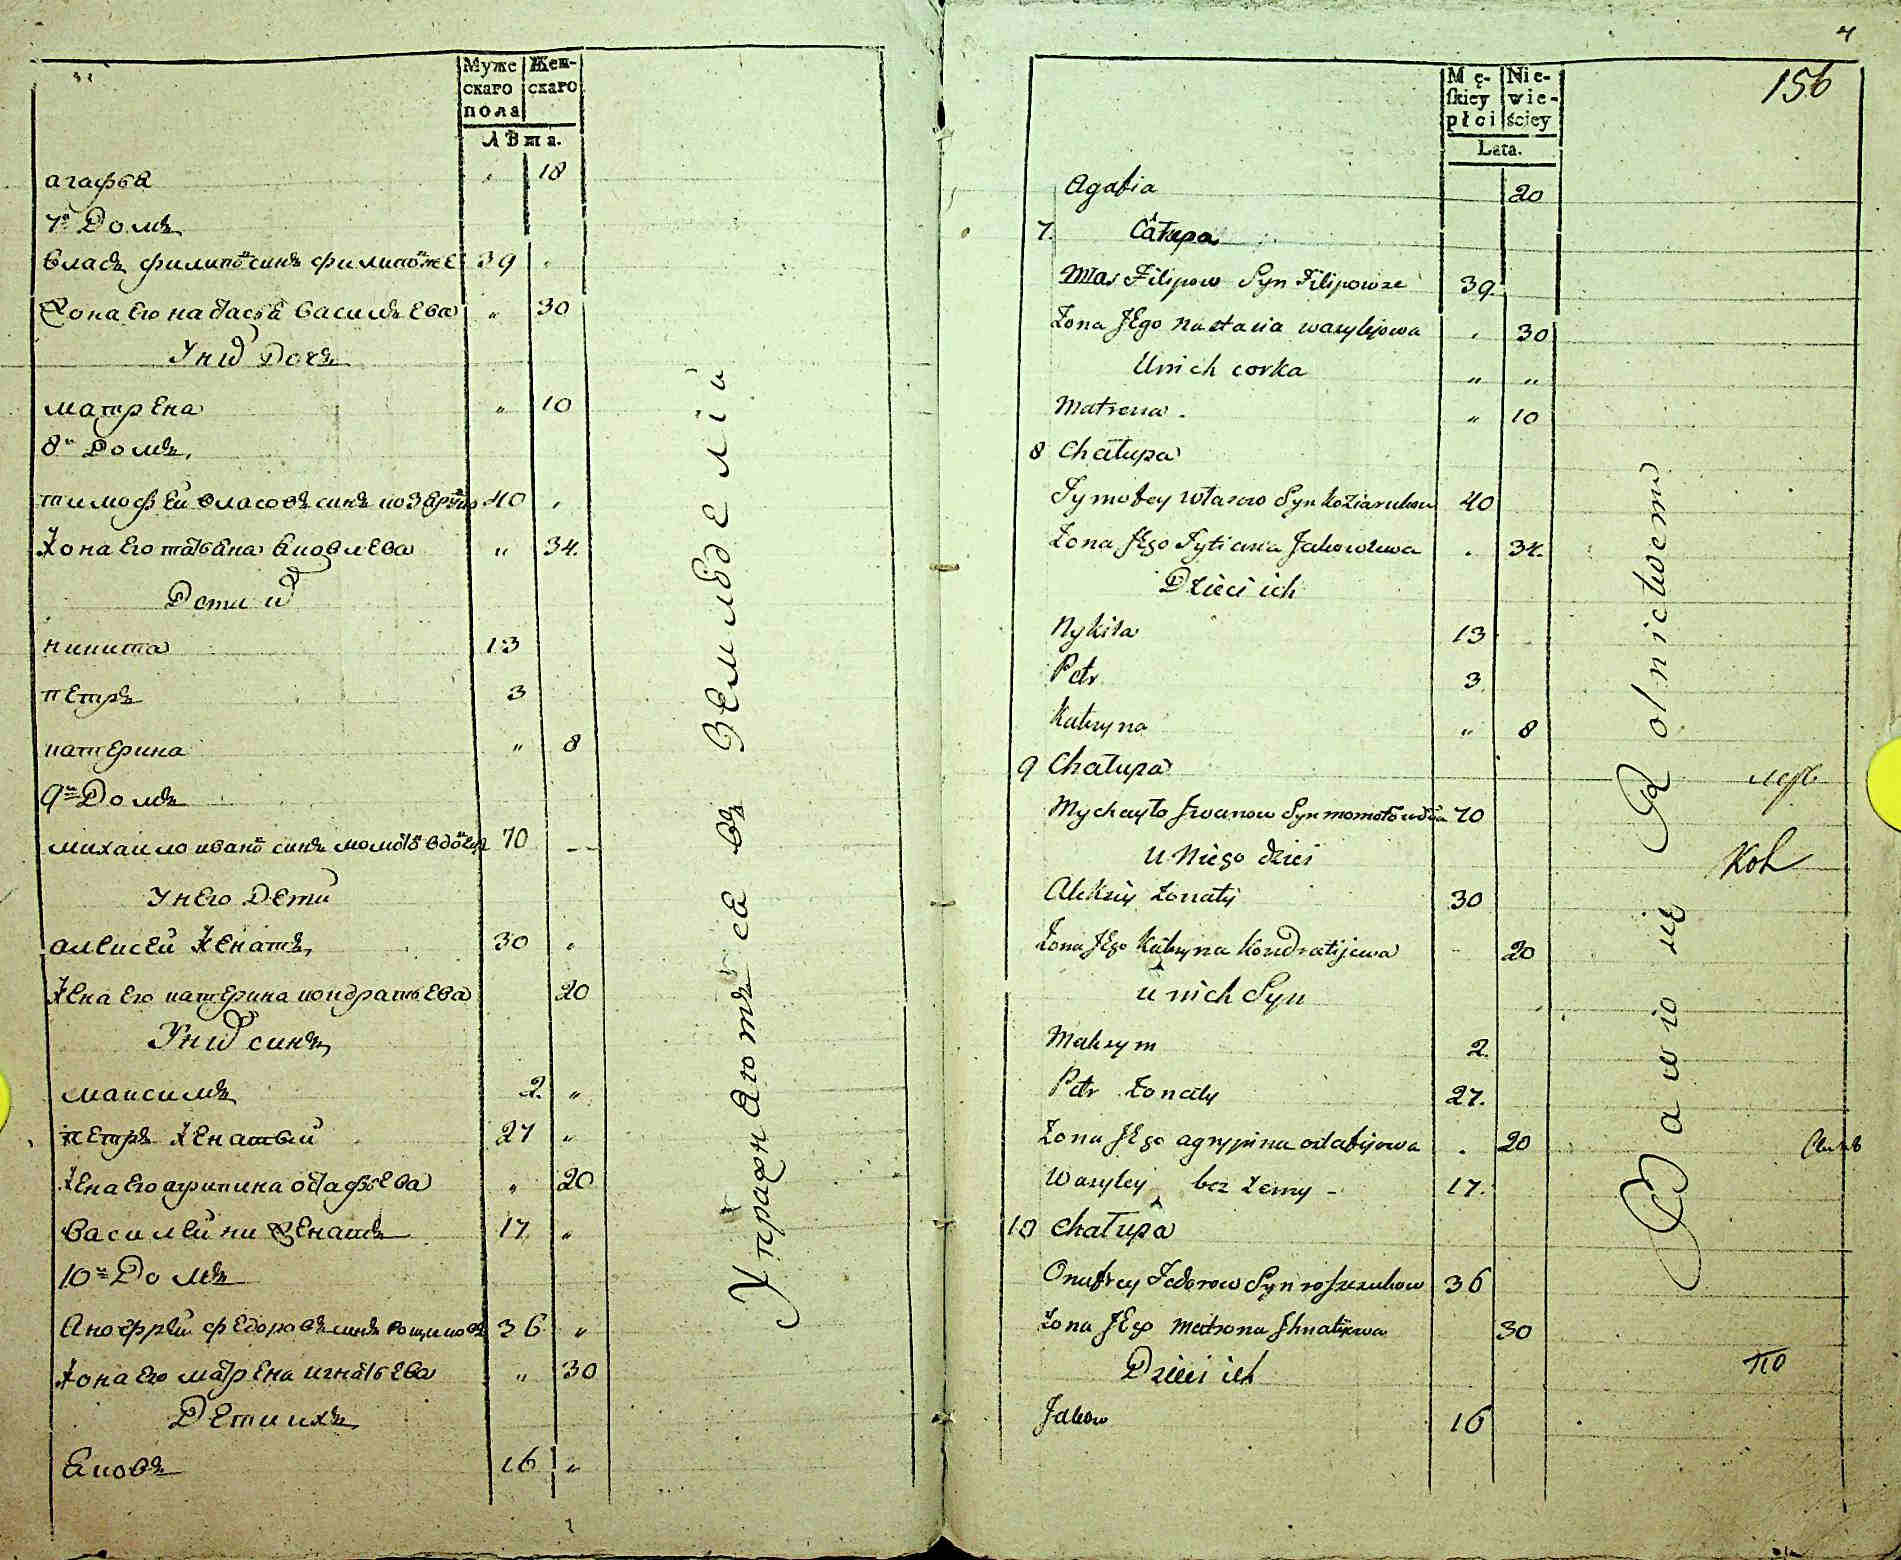 Муже
скаго
пола
Жен-
скаго
Лѣта.
агафѣя 18
7й Домъ
власъ филипо синъ филипо 39
Жона его настасѣя василъева 30
У них Дочъ
матрена 10
8й Домъ
тимофей власовъ синъ 40
Жона его татьяна яковлева 34
Дети их
никита 13
петръ 3
катерина 8
9й Домъ
михаило ивано синъ 70
У него Дети
алексей женатъ 30
жена его катерина кондратьева 20
У них синъ
максимъ 2
петръ женатый 27
жена его агрипина остафьева 20
василей ни женатъ 17
10й Домъ
Анофрей федоровъ синъ 36
жона его матрена игнатьева 30
Дети ихъ
Яковъ 16
Упражняютъся въ земледелии
4
156
Mę-
skiey
płci
Nie-
wie-
ściey
Lata.
Agafia 20
7. Całupa
Filipow Syn Filipowze 39.
Żona JEgo nastasia wasylijowa 30
U nich corka
Matrena 10
8 Chałupa
Tymofey własow Syn 40
Żona JEgo Tytiana Jakowlewa 34.
Dzieci ich
Nykita 13
Petr 3
Katryna 8
9 Chałupa
Mychayło Iwanow Syn 70
U Niego dzieci
Alekziy żonaty 30
Żona JEgo Katryna Kondratijewa 20
u nich Syn
Maksym 2.
Petr żonaty 27.
Żona JEgo agrypina ostafijowa 20
Wasyley bez żemy 17.
10 Chałupa
Onufrey Fedorow Syn 36
Żona JEgo Matrona Ihnatijewa 30
Dzieci ich
Jakow 16
Bawio się Rolnictwem
Кол
по